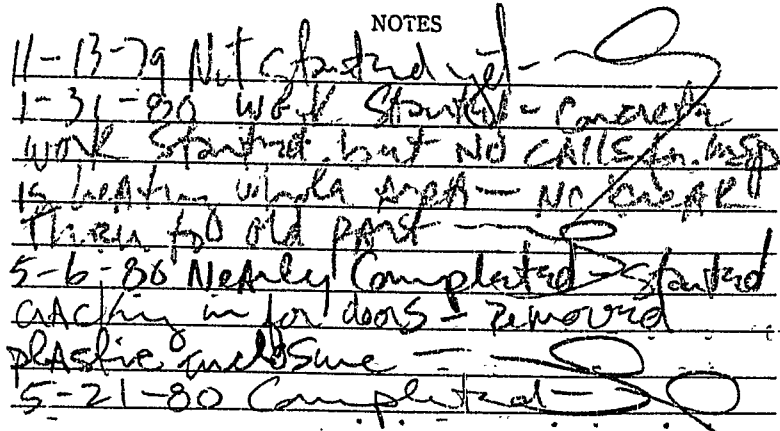 NOTES
11-13-79 Not started yet -
1-31-80 work started - concrete
work started but NO CALLS for insp
is heating whole area - NO break
Thru to old part -
5-6-80 Nearly Completed - started
in for doors - removed
plastic enclosure -
5-21-80 Completed -